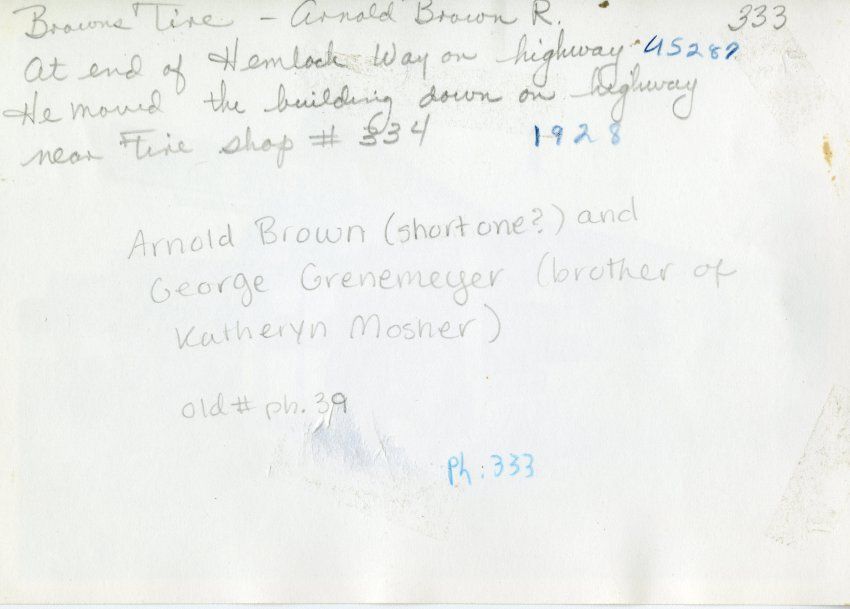 Browns' Tire - Arnold Brown R. 333
At end of Hemlock Way on highway US287
He moved the building down on highway
near Tire shop # 334 1928
Arnold Brown (short one?) and
George Grenemeyer (brother of
Katheryn Mosher)
old# ph. 39
Ph: 333